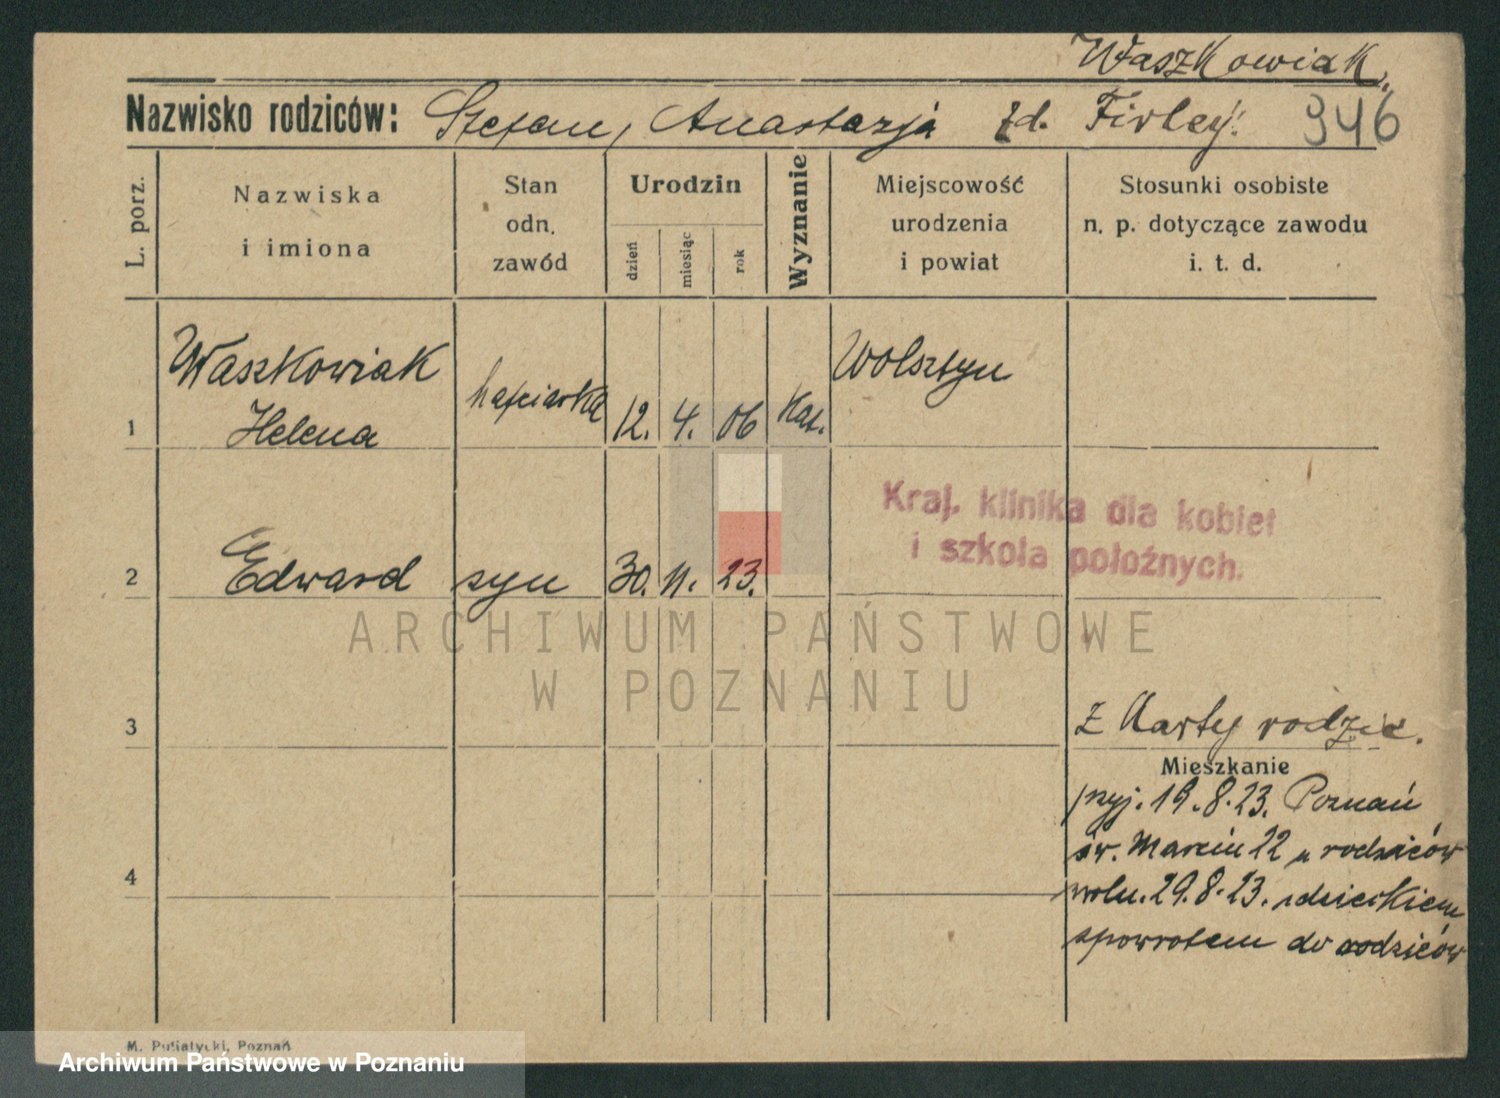 Waszkowiak.
Nazwisko rodziców: Stefan, Anastazja zd. Firlej. 946
L. porz.
Nazwiska
i imiona
Stan
odn.
zawód
Urodzin
dzień
miesiąc
rok
Wyznanie
Miejscowość
urodzenia
i powiat
Stosunki osobiste
n. p. dotyczące zawodu
i. t. d.
1 Waszkowiak
Helena
hafciarka 12. 4. 06 Kat. Wolsztyn
Kraj. klinika dla kobiet
i szkoła położnych.
2 Edward syn 30. 11. 23.
ARCHIWUM PAŃSTWOWE
W POZNANIU
3
z Karty rodzic.
Mieszkanie
przyj. 19.8.23. Poznań
św. Marcin 22 u rodziców
4
29.8.23. z dzieckiem
spowrotem do rodziców
M. Putiatycki, Poznań
Archiwum Państwowe w Poznaniu